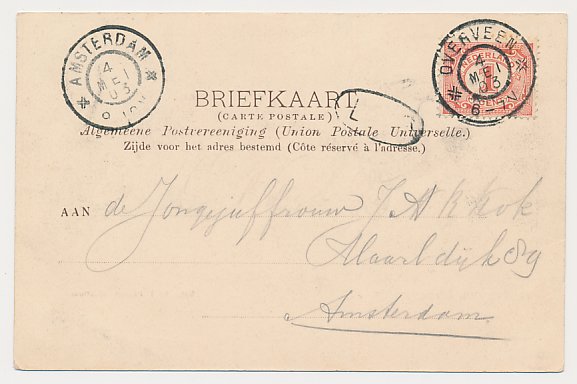 AMSTERDAM
4
MEI
03
OVERVEEN
4
MEI
03
6-7V
NEDERLAND
BRIEFKAART
(CARTE POSTALE)
Algemeene Postvereeniging (Union Postale Universelle.)
Zijde voor het adres bestemd (Côte réservé à l'adresse.)
AAN de Jongejuffrouw J A K Kok
89
Amsterdam